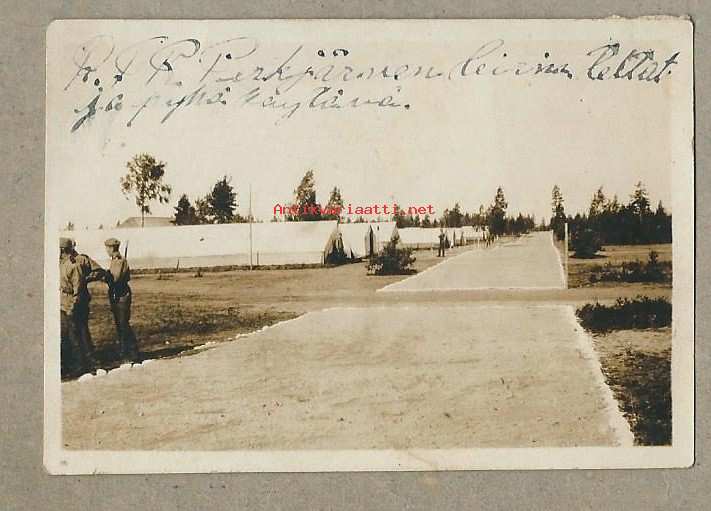 R. T. R. Perkjärven leirin teltat
ja pyhä käytävä.
Antikvariaatti.net